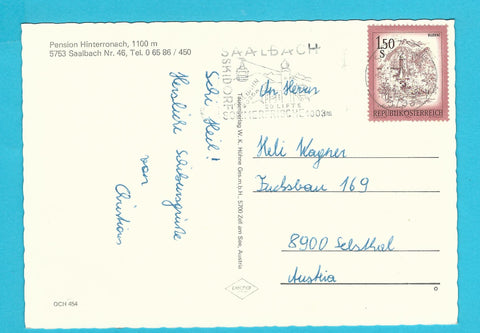 Pension Hinterronach, 1100 m
5753 Saalbach Nr. 46, Tel. 0 65 86 / 450
Schi Heil!
Herzliche Schiurlaubsgrüße
von
Christian
OCH 454
W. K. Höhne Ges.m.b.H., 5700 Zell am See, Austria
SAALBACH
SKIDORF
LIFTE
SOMMERFRISCHE 1003m
1.50
S
REPUBLIK ÖSTERREICH
An Herrn
Heli Wagner
Fuchsbau 169
8900 Selzthal
Austria